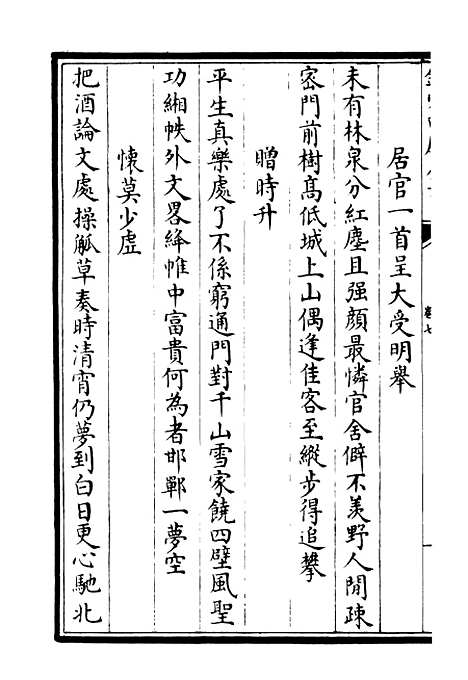 居官一首呈大受明舉
未有林泉分紅塵且强顔最憐官舍僻不羡野人閒疎
宻門前樹髙低城上山偶逢佳客至縱步得追攀
贈時升
平生真樂處了不係窮通門對千山雪家饒四壁風聖
功緗帙外文畧絳帷中富貴何為者邯鄲一夢空
懷莫少虚
把酒論文處操觚草奏時清宵仍夢到白日更心馳北